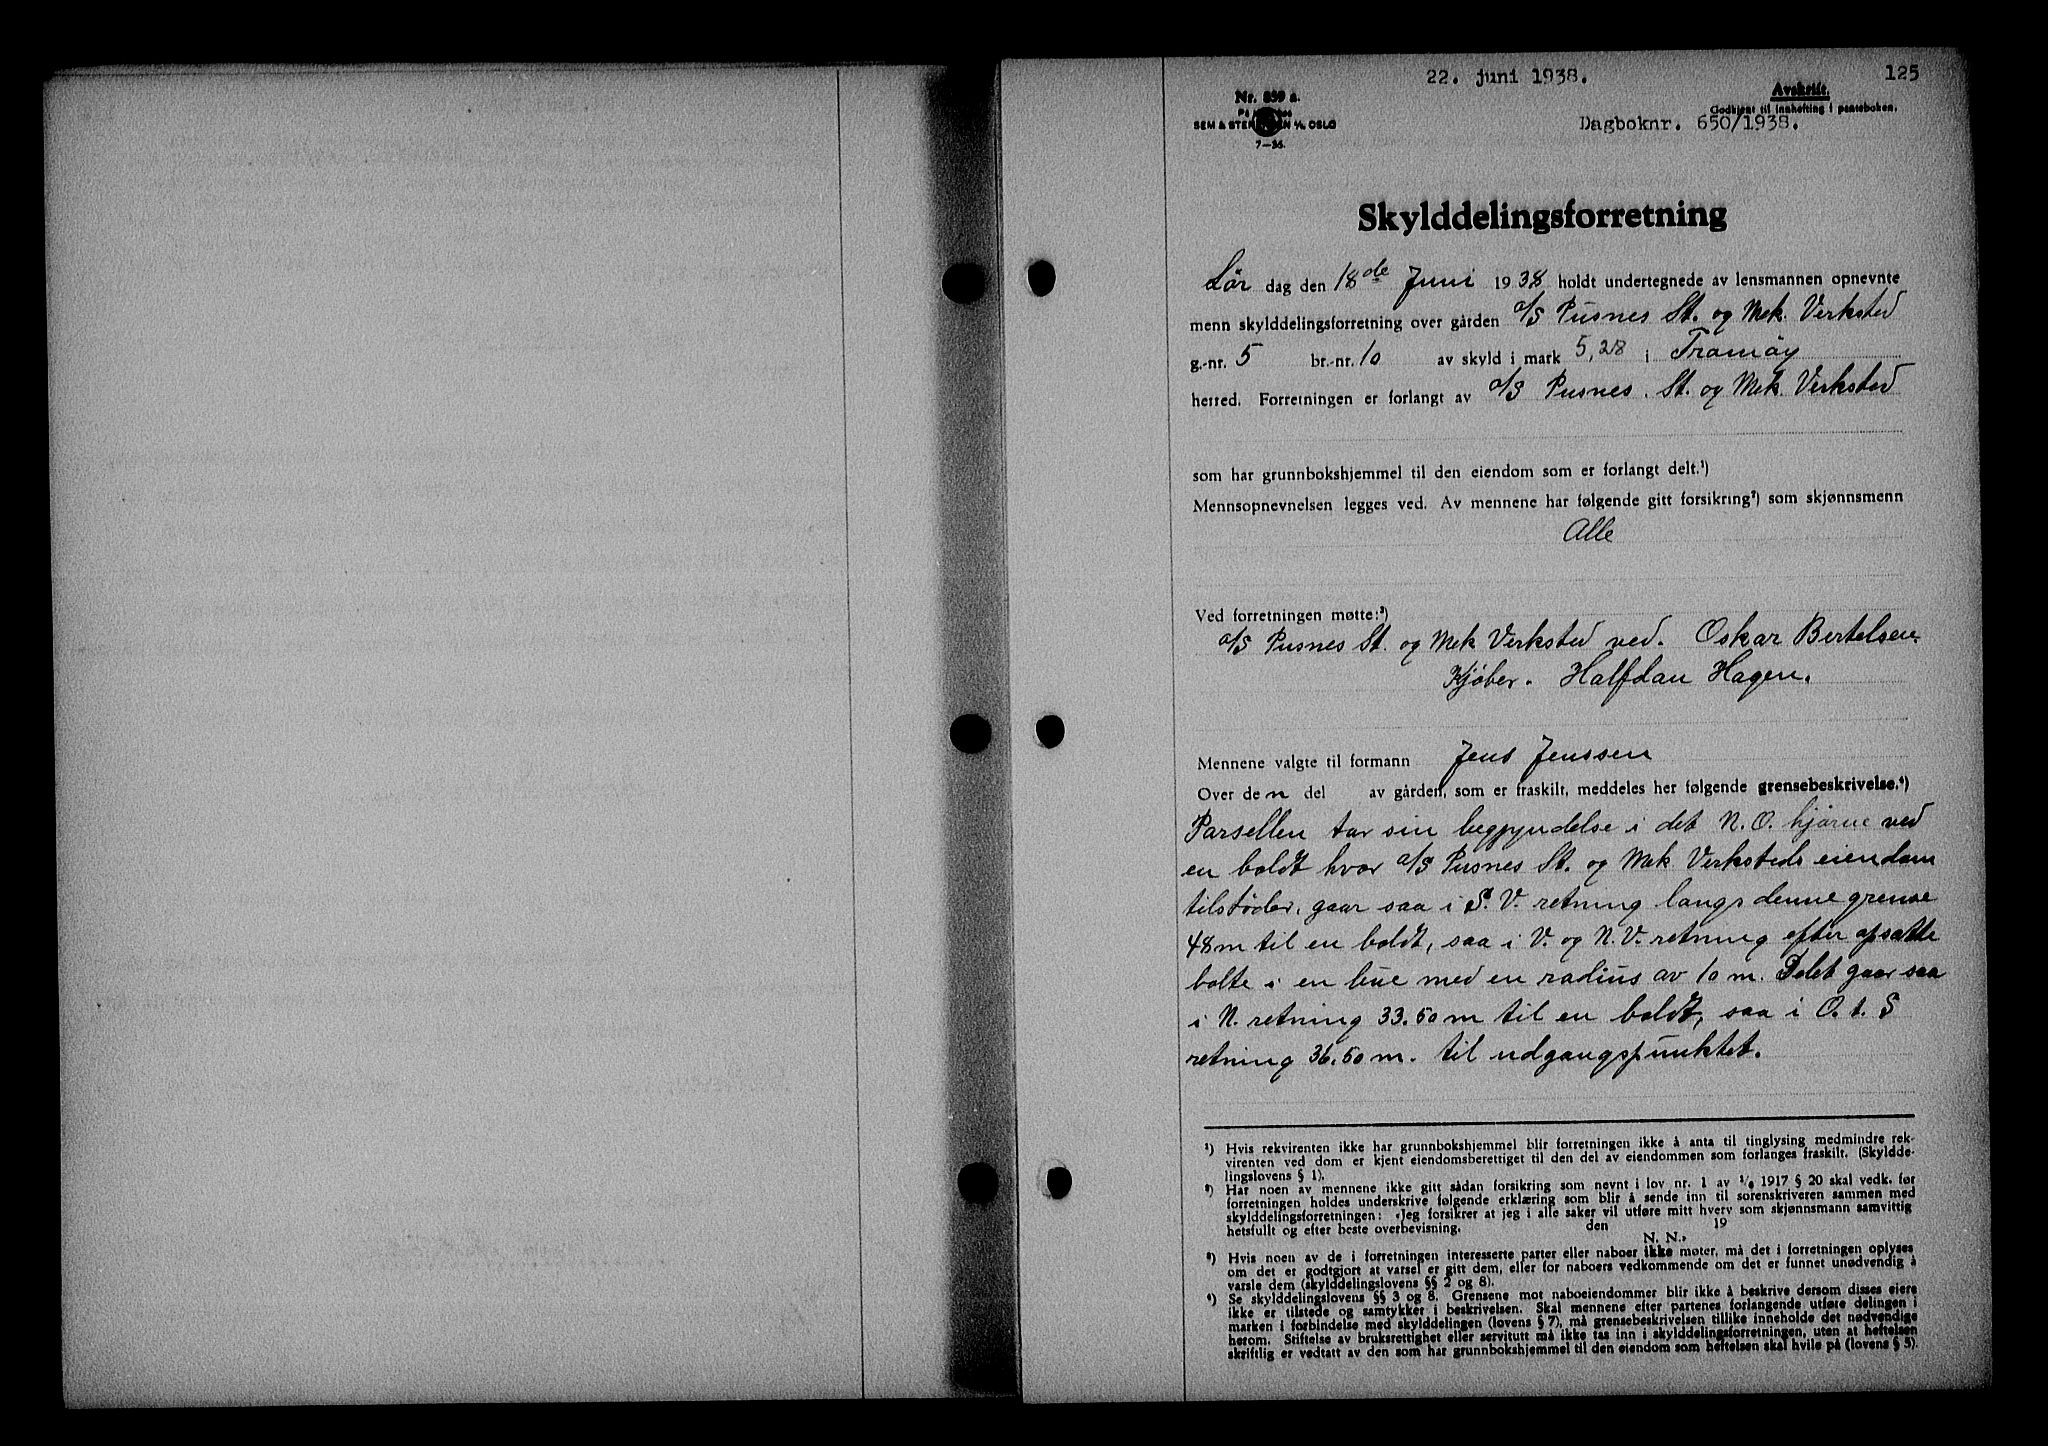 22. juni 1938.
125
Nr. 859 a.
Avskrift.
Godkjent til innhefting i panteboken.
SEM & STEN A/S OSLO
Dagboknr. 650/1938.
7—36.
Skylddelingsforretning
Lør dag den 18de Juni 1938 holdt undertegnede av lensmannen opnevnte
menn skylddelingsforretning over gården a/s Pusnes St. og Mek. Verksted
g.-nr. 5 br.-nr. 10 av skyld i mark 5,28 i Tromøy
herred. Forretningen er forlangt av a/s Pusnes. St. og Mek. Verksted
som har grunnbokshjemmel til den eiendom som er forlangt delt.¹)
Mennsopnevnelsen legges ved. Av mennene har følgende gitt forsikring²) som skjønnsmenn
Alle
Ved forretningen møtte:³)
a/s Pusnes St. og Mek Verksted ved. Oskar Bertelsen.
Kjøber. Halfdan Hagen.
Mennene valgte til formann Jens Jenssen
Over den del av gården, som er fraskilt, meddeles her følgende grensebeskrivelse.⁴)
Parsellen tar sin begynndelse i det N.O. hjørne ved
en boldt hvor a/s Pusnes St. og Mek Verksteds eiendom
tilstøder, gaar saa i S.V. retning langs denne grense
48m til en boldt, saa i V. og N.V. retning efter opsatte
bolte i en bue med en radius av 10 m. Delet gaar saa
i N. retning 33.50m til en boldt, saa i O. t. S
retning 36.50m. til udgangspunktet.
¹) Hvis rekvirenten ikke har grunnbokshjemmel blir forretningen ikke å anta til tinglysing medmindre rek-
virenten ved dom er kjent eiendomsberettiget til den del av eiendommen som forlanges fraskilt. (Skyldde-
lingslovens § 1).
²) Har noen av mennene ikke gitt sådan forsikring som nevnt i lov nr. 1 av 1/6 1917 § 20 skal vedk. før
forretningen holdes underskrive følgende erklæring som blir å sende inn til sorenskriveren sammen med
skylddelingsforretningen: «Jeg forsikrer at jeg i alle saker vil utføre mitt hverv som skjønnsmann samvittig
hetsfullt og efter beste overbevisning. den 19
N. N.»
³) Hvis noen av de i forretningen interesserte parter eller naboer ikke møter, må det i forretningen oplyses
om det er godtgjort at varsel er gitt dem, eller for naboers vedkommende om det er funnet unødvendig å
varsle dem (skylddelingslovens §§ 2 og 8).
⁴) Se skylddelingslovens §§ 3 og 8. Grensene mot naboeiendommer blir ikke å beskrive dersom disses eiere
ikke er tilstede og samtykker i beskrivelsen. Skal mennene efter partenes forlangende utføre delingen i
marken i forbindelse med skylddelingen (lovens § 7), må grensebeskrivelsen tillike inneholde det nødvendige
herom. Stiftelse av bruksrettighet eller servitutt må ikke tas inn i skylddelingsforretningen, uten at heftelsen
skriftlig er vedtatt av den som har grunnbokshjemmel til den eiendom som heftelsen skal hvile på (lovens § 5).